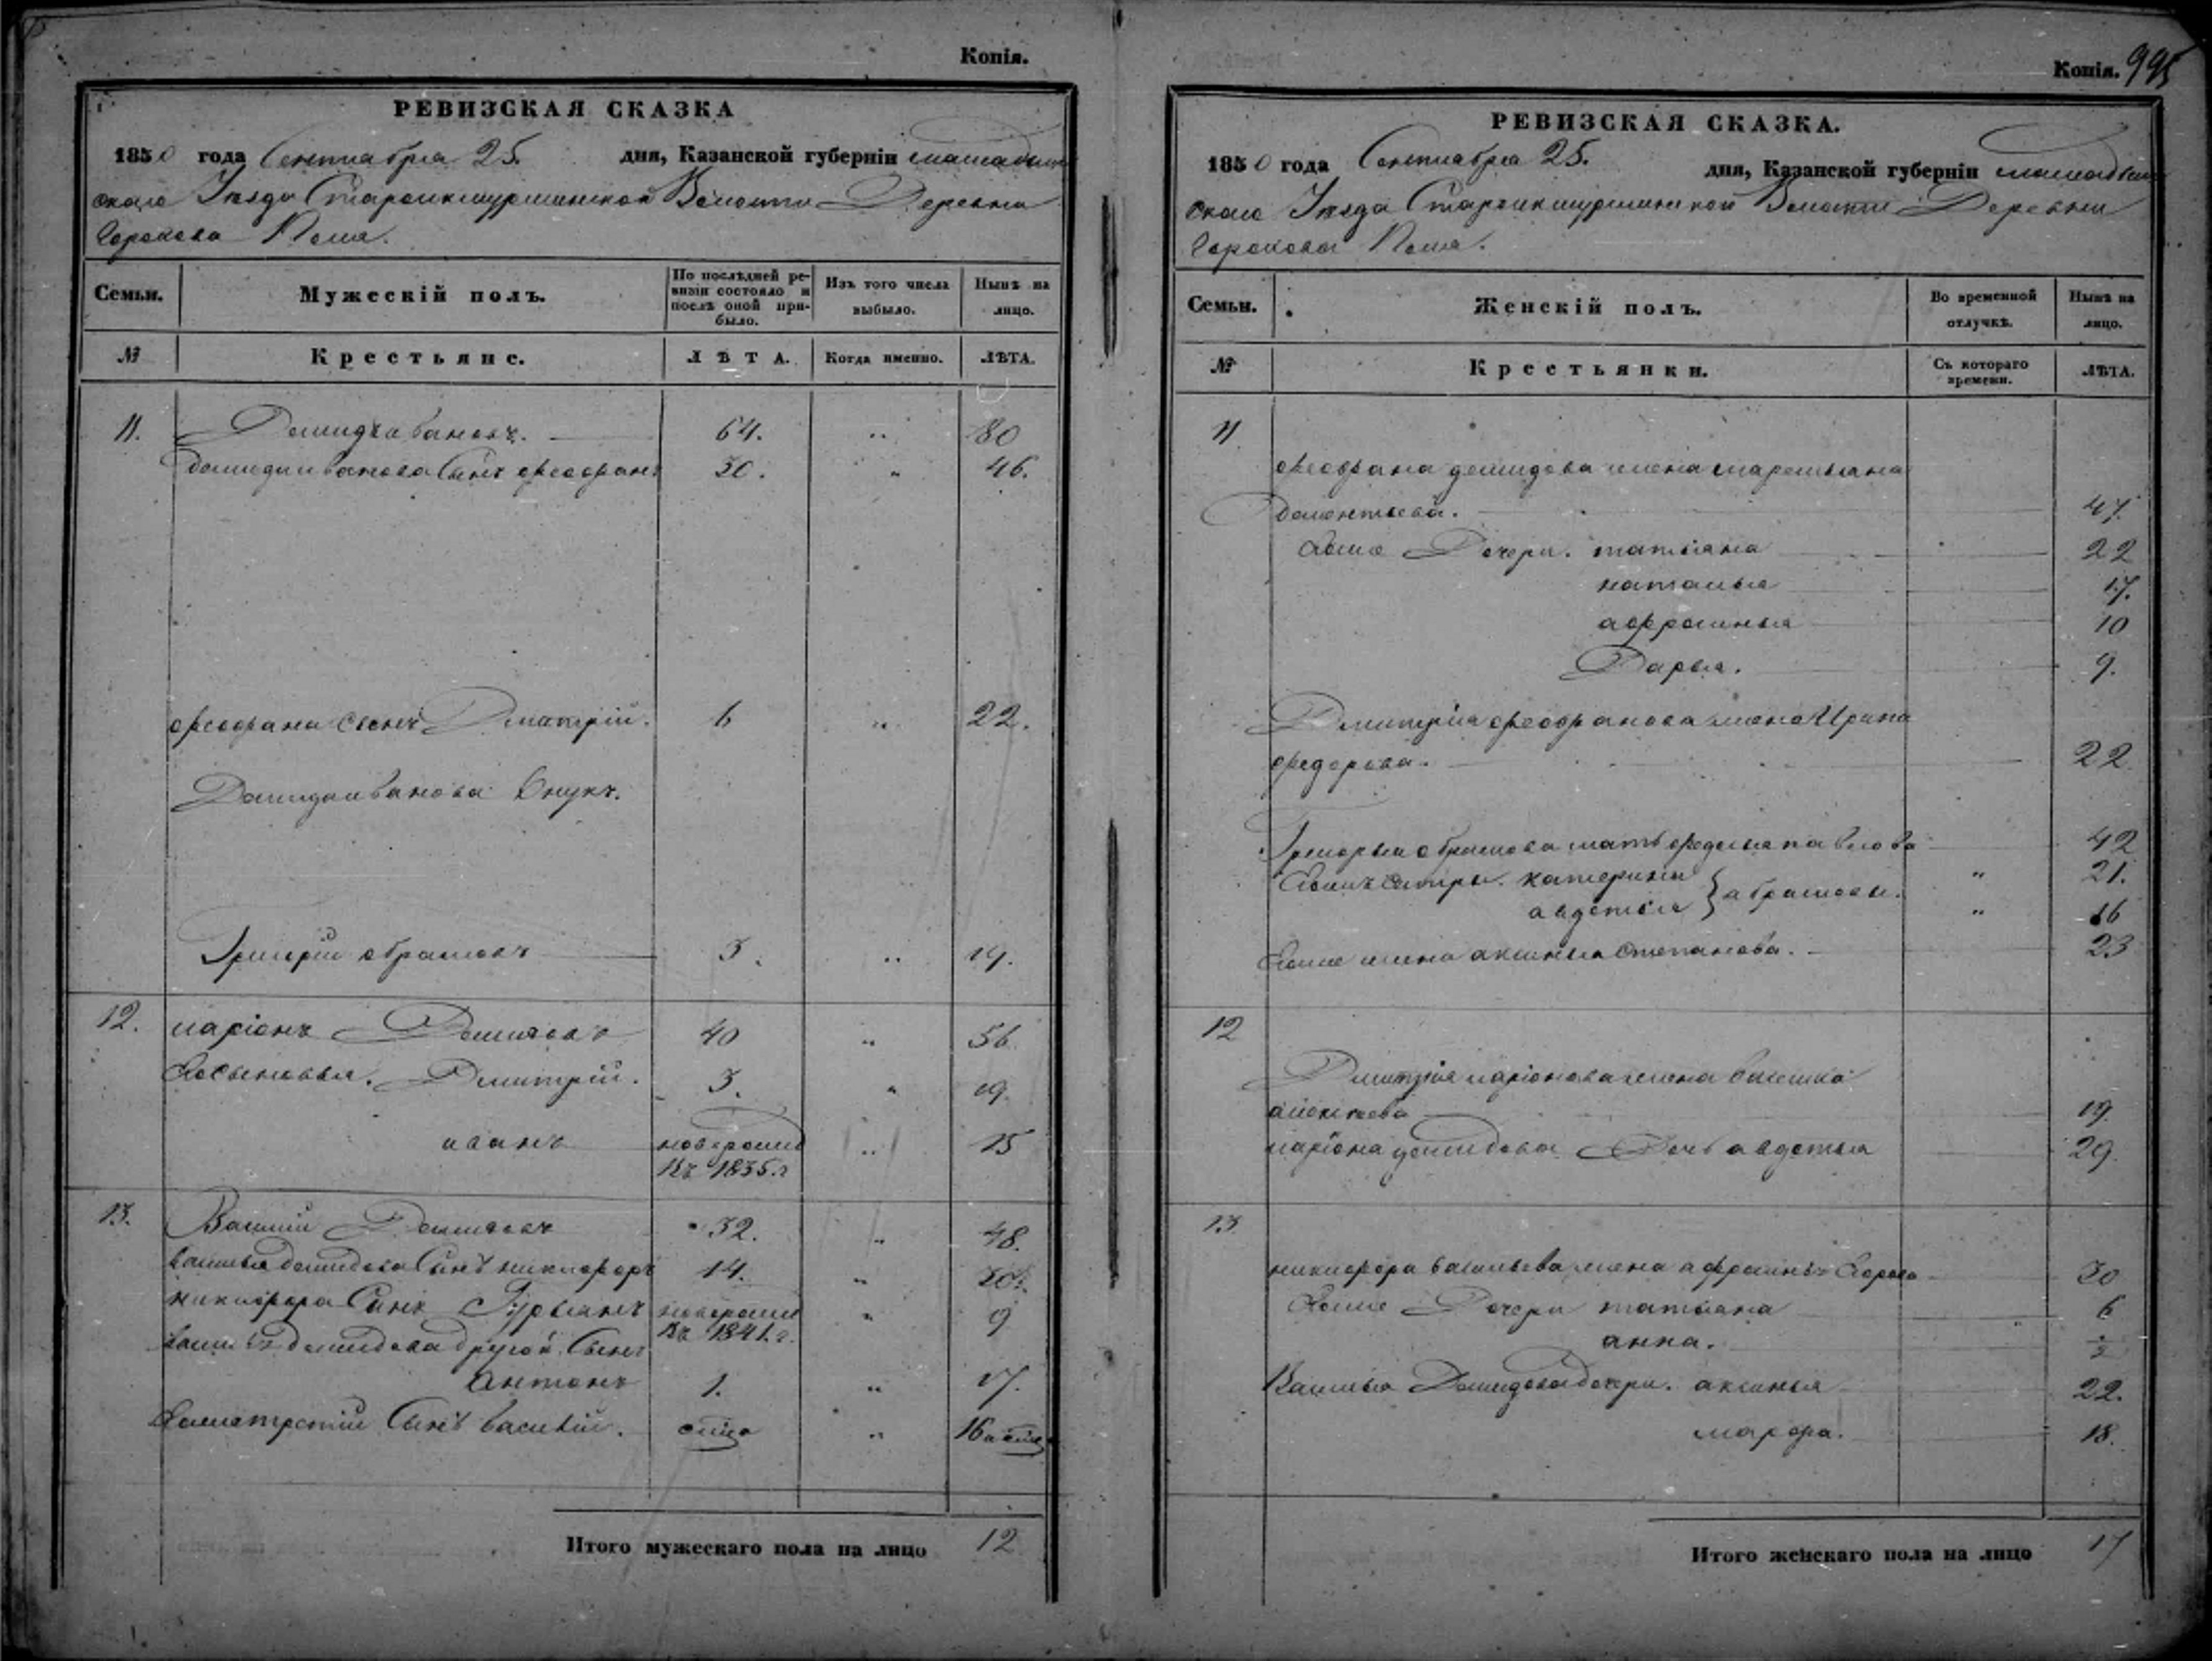 Копія.
РЕВИЗСКАЯ СКАЗКА
1850 года Сентября 25. дня, Казанской губерніи мамадыш
скаго Уезда Староикшурминской Волости Деревни
Горохова Поля.
Семьи.
Мужескій полъ.
По послѣдней ре-
визіи состояло и
послѣ оной при-
было.
Изъ того числа
выбыло.
Нынѣ на
лицо.
№
Крестьяне.
ЛѢТА.
Когда именно.
ЛѢТА.
11. Демидъ ивановъ. 64. " 80
демида иванова Сынъ феофанъ 30. " 46.
феофана сынъ Дмитрій. 6 " 22.
Демида иванова Внукъ.
Григорій абрамовъ 3. " 19.
12. ларіонъ Демидовъ 40 " 56
Его Сыновья. Дмитрій. 3. " 19.
иванъ новорожд " 15
Въ 1835.г
13. Василій Демидовъ 32. " 48.
василья демидова Сынъ никифоръ 14. " 30.
никифора Сынъ Гурьянъ новорожд " 9
Въ 1841.г.
василья демидова другой Сынъ
Антонъ 1. " 17.
Василій. " 16
Итого мужескаго пола на лицо 12
Копія. 995
РЕВИЗСКАЯ СКАЗКА.
1850 года Сентября 25. дня, Казанской губерніи мамадыш
скаго Уезда Староикшурминской Волости Деревни
Горохова Поля.
Семьи.
Женскій полъ.
Во временной
отлучкѣ.
Нынѣ на
лицо.
№
Крестьянки.
Съ котораго
времени.
ЛѢТА.
11
феофана демидова жена маремьяна
Дементьева. 47.
Его Дочери. татьяна 22
наталья 17.
афросинья 10
Дарья. 9.
Дмитрія феофанова жена Ирина
федорова. 22
Григорья абрамова мать федосья павлова 42
сестры. катерина } абрамовы. " 21.
авдотья " 16
Его жена аксинья Степанова. 23
12
Дмитрія ларіонова жена
алексеева 19.
ларіона демидова Дочь авдотья 29.
13.
никифора васильева жена афросинья 30
Его Дочери татьяна 6
анна.
Василья Демидова дочери. аксинья 22.
марфа. 18.
Итого женскаго пола на лицо 17